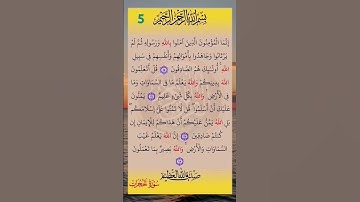 5
بسم الله الرحمن الرحيم
إِنَّمَا الْمُؤْمِنُونَ الَّذِينَ آمَنُوا بِاللَّهِ وَرَسُولِهِ ثُمَّ لَمْ
يَرْتَابُوا وَجَاهَدُوا بِأَمْوَالِهِمْ وَأَنْفُسِهِمْ فِي سَبِيلِ
اللَّهِ أُولَٰئِكَ هُمُ الصَّادِقُونَ قُلْ أَتُعَلِّمُونَ
اللَّهَ بِدِينِكُمْ وَاللَّهُ يَعْلَمُ مَا فِي السَّمَاوَاتِ وَمَا
فِي الْأَرْضِ وَاللَّهُ بِكُلِّ شَيْءٍ عَلِيمٌ يَمُنُّونَ
عَلَيْكَ أَنْ أَسْلَمُوا قُلْ لَا تَمُنُّوا عَلَيَّ إِسْلَامَكُمْ
بَلِ اللَّهُ يَمُنُّ عَلَيْكُمْ أَنْ هَدَاكُمْ لِلْإِيمَانِ إِنْ
كُنْتُمْ صَادِقِينَ إِنَّ اللَّهَ يَعْلَمُ غَيْبَ
السَّمَاوَاتِ وَالْأَرْضِ وَاللَّهُ بَصِيرٌ بِمَا تَعْمَلُونَ
صدق الله العظيم
سورة الحجرات